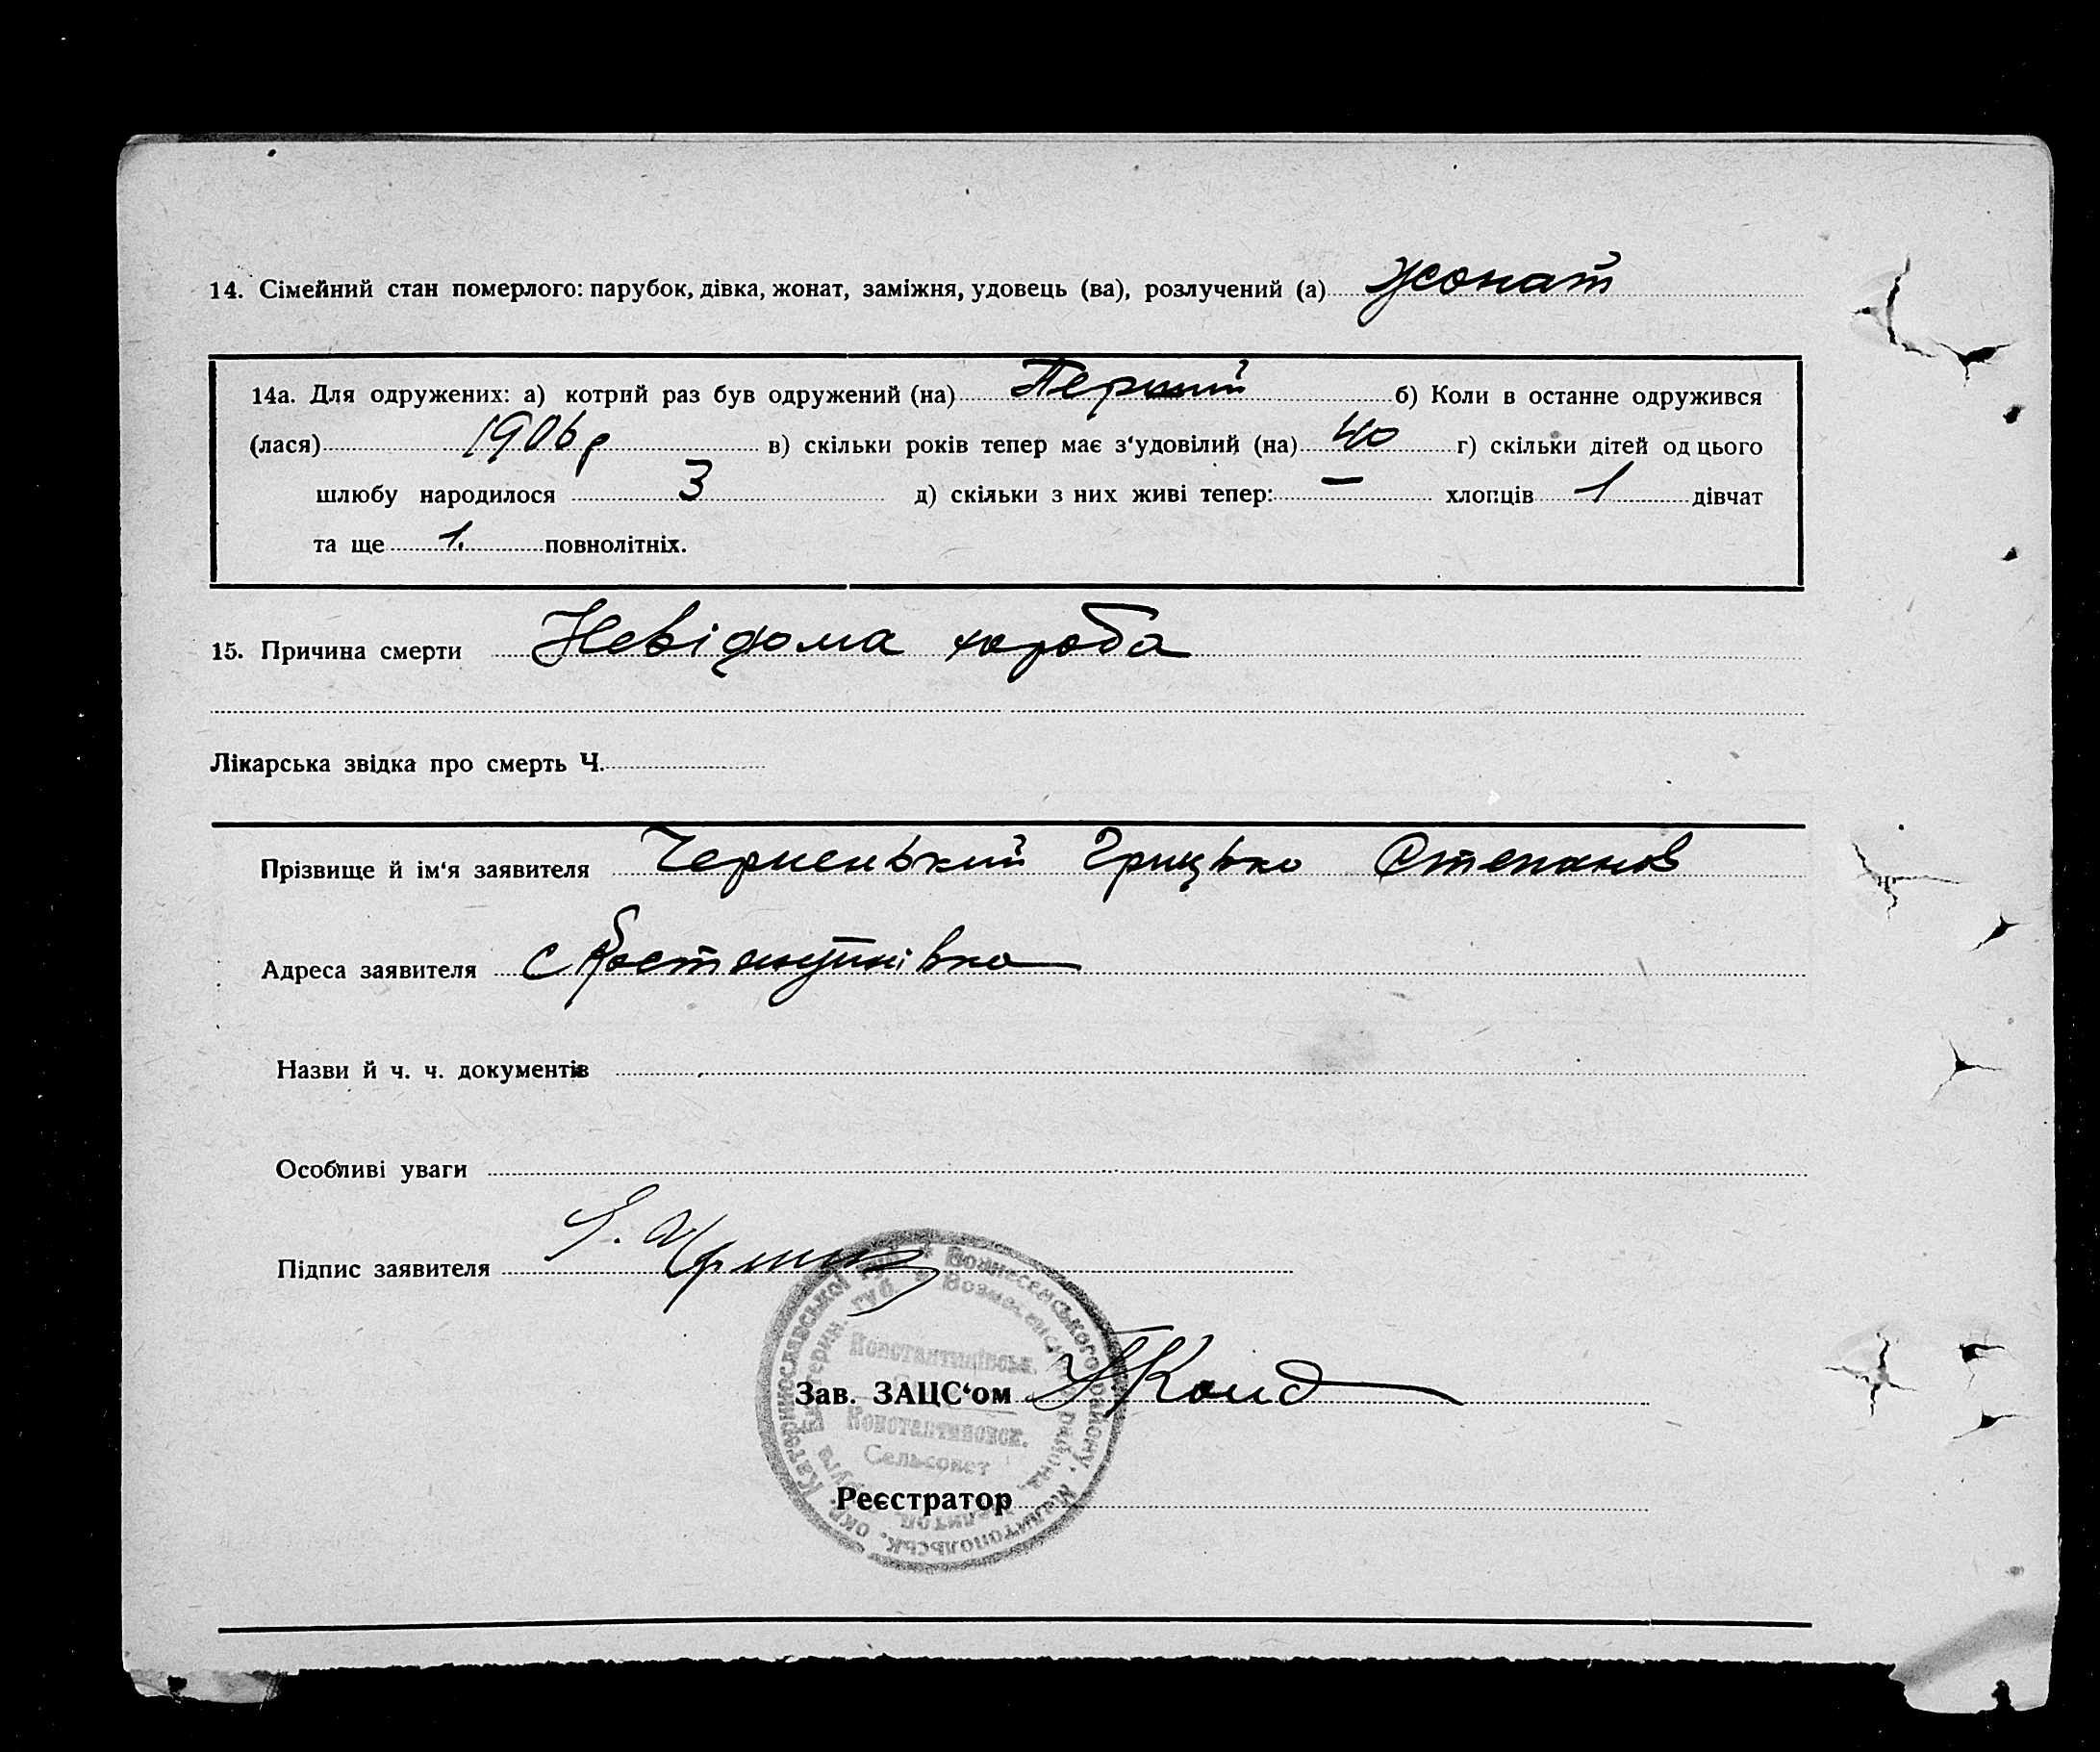 14. Сімейний стан померлого: парубок, дівка, жонат, заміжня, удовець (ва), розлучений (а) жонат
14а. Для одружених: а) котрий раз був одружений (на) Перший б) Коли в останне одружився
(лася) 1906 р в) скільки років тепер має з‘удовілий (на) 40 г) скільки дітей од цього
шлюбу народилося 3 д) скільки з них живі тепер: — хлопців 1 дівчат
та ще 1. повнолітніх.
15. Причина смерти Невідома хороба
Лікарська звідка про смерть Ч.
Прізвище й ім‘я заявителя Черненький Грицько Степанов
Адреса заявителя с Костянтинівка
Назви й ч. ч. документів
Особливі уваги
Підпис заявителя
Катеринославської губ. Вознесенського району, Мелитопольськ. окр.
Константинівськ.
Зав. ЗАЦС‘ом
Константиновск.
Сельсовет
Реєстратор